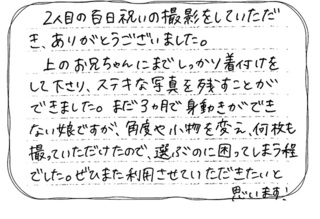 2人目の百日祝いの撮影をしていただ
き、ありがとうございました。
上のお兄ちゃんにまでしっかり着付けを
して下さり、ステキな写真を残すことが
できました。まだ3ヵ月で身動きができ
ない娘ですが、角度や小物を変え、何枚も
撮っていただけたので、選ぶのに困ってしまう程
でした。ぜひまた利用させていただきたいと
思います!